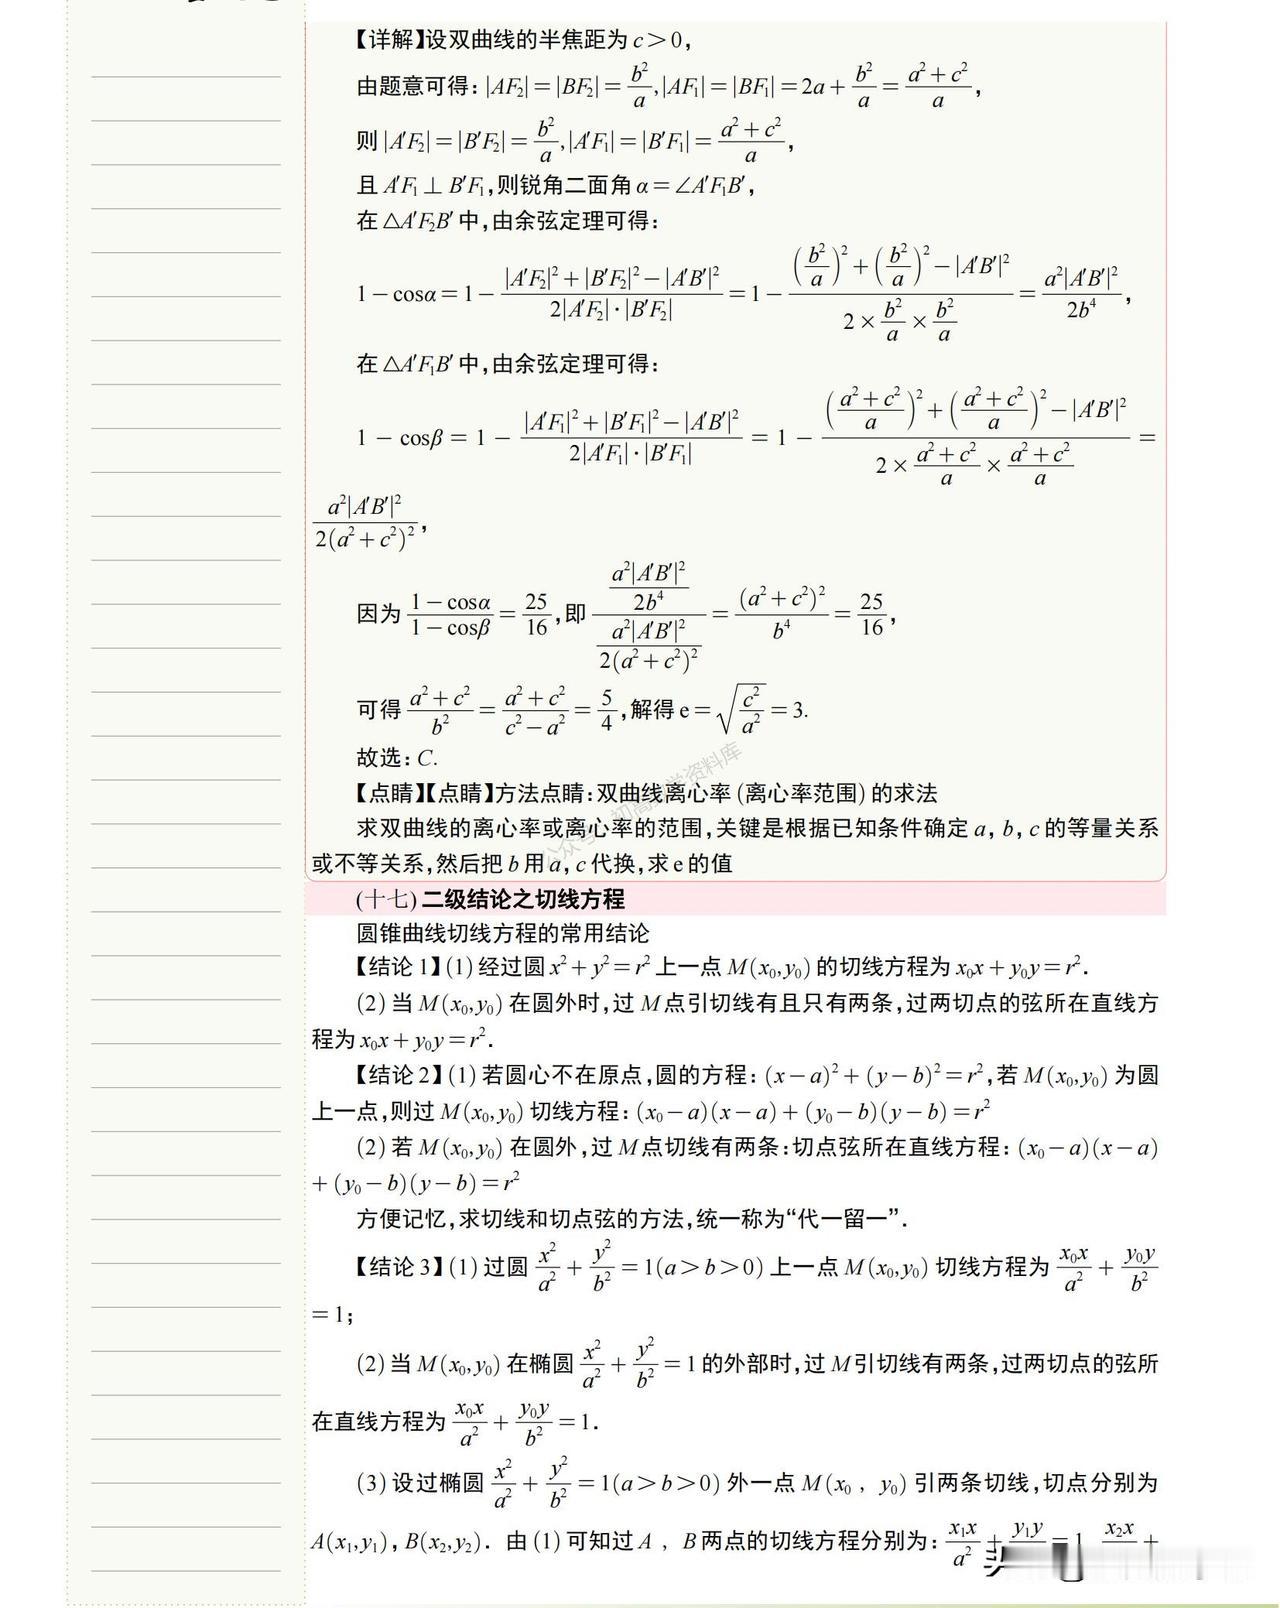 【详解】设双曲线的半焦距为 c > 0，
由题意可得：|AF₂| = |BF₂| = b²/a, |AF₁| = |BF₁| = 2a + b²/a = (a² + c²)/a，
则 |A′F₂| = |B′F₂| = b²/a, |A′F₁| = |B′F₁| = (a² + c²)/a，
且 A′F₁ ⊥ B′F₁，则锐角二面角 α = ∠A′F₁B′，
在 △A′F₂B′ 中，由余弦定理可得：
1 − cosα = 1 − (|A′F₂|² + |B′F₂|² − |A′B′|²)/(2|A′F₂|·|B′F₂|) = 1 − ((b²/a)² + (b²/a)² − |A′B′|²)/(2 × b²/a × b²/a) = a²|A′B′|²/(2b⁴)，
在 △A′F₁B′ 中，由余弦定理可得：
1 − cosβ = 1 − (|A′F₁|² + |B′F₁|² − |A′B′|²)/(2|A′F₁|·|B′F₁|) = 1 − (((a² + c²)/a)² + ((a² + c²)/a)² − |A′B′|²)/(2 × (a² + c²)/a × (a² + c²)/a) =
a²|A′B′|²/(2(a² + c²)²)，
因为 (1 − cosα)/(1 − cosβ) = 25/16，即 (a²|A′B′|²/(2b⁴))/(a²|A′B′|²/(2(a² + c²)²)) = (a² + c²)²/b⁴ = 25/16，
可得 (a² + c²)/b² = (a² + c²)/(c² − a²) = 5/4，解得 e = √(c²/a²) = 3.
故选：C.
【点睛】【点睛】方法点睛：双曲线离心率 (离心率范围) 的求法
求双曲线的离心率或离心率的范围，关键是根据已知条件确定 a, b, c 的等量关系
或不等关系，然后把 b 用 a, c 代换，求 e 的值
(十七) 二级结论之切线方程
圆锥曲线切线方程的常用结论
【结论 1】(1) 经过圆 x² + y² = r² 上一点 M(x₀,y₀) 的切线方程为 x₀x + y₀y = r².
(2) 当 M(x₀,y₀) 在圆外时，过 M 点引切线有且只有两条，过两切点的弦所在直线方
程为 x₀x + y₀y = r².
【结论 2】(1) 若圆心不在原点，圆的方程：(x − a)² + (y − b)² = r²，若 M(x₀,y₀) 为圆
上一点，则过 M(x₀,y₀) 切线方程：(x₀ − a)(x − a) + (y₀ − b)(y − b) = r²
(2) 若 M(x₀,y₀) 在圆外，过 M 点切线有两条：切点弦所在直线方程：(x₀ − a)(x − a)
+ (y₀ − b)(y − b) = r²
方便记忆，求切线和切点弦的方法，统一称为“代一留一”.
【结论 3】(1) 过圆 x²/a² + y²/b² = 1(a > b > 0) 上一点 M(x₀,y₀) 切线方程为 x₀x/a² + y₀y/b²
= 1；
(2) 当 M(x₀,y₀) 在椭圆 x²/a² + y²/b² = 1 的外部时，过 M 引切线有两条，过两切点的弦所
在直线方程为 x₀x/a² + y₀y/b² = 1.
(3) 设过椭圆 x²/a² + y²/b² = 1(a > b > 0) 外一点 M(x₀, y₀) 引两条切线，切点分别为
A(x₁,y₁), B(x₂,y₂). 由 (1) 可知过 A, B 两点的切线方程分别为：x₁x/a² + y₁y = 1 x₂x +